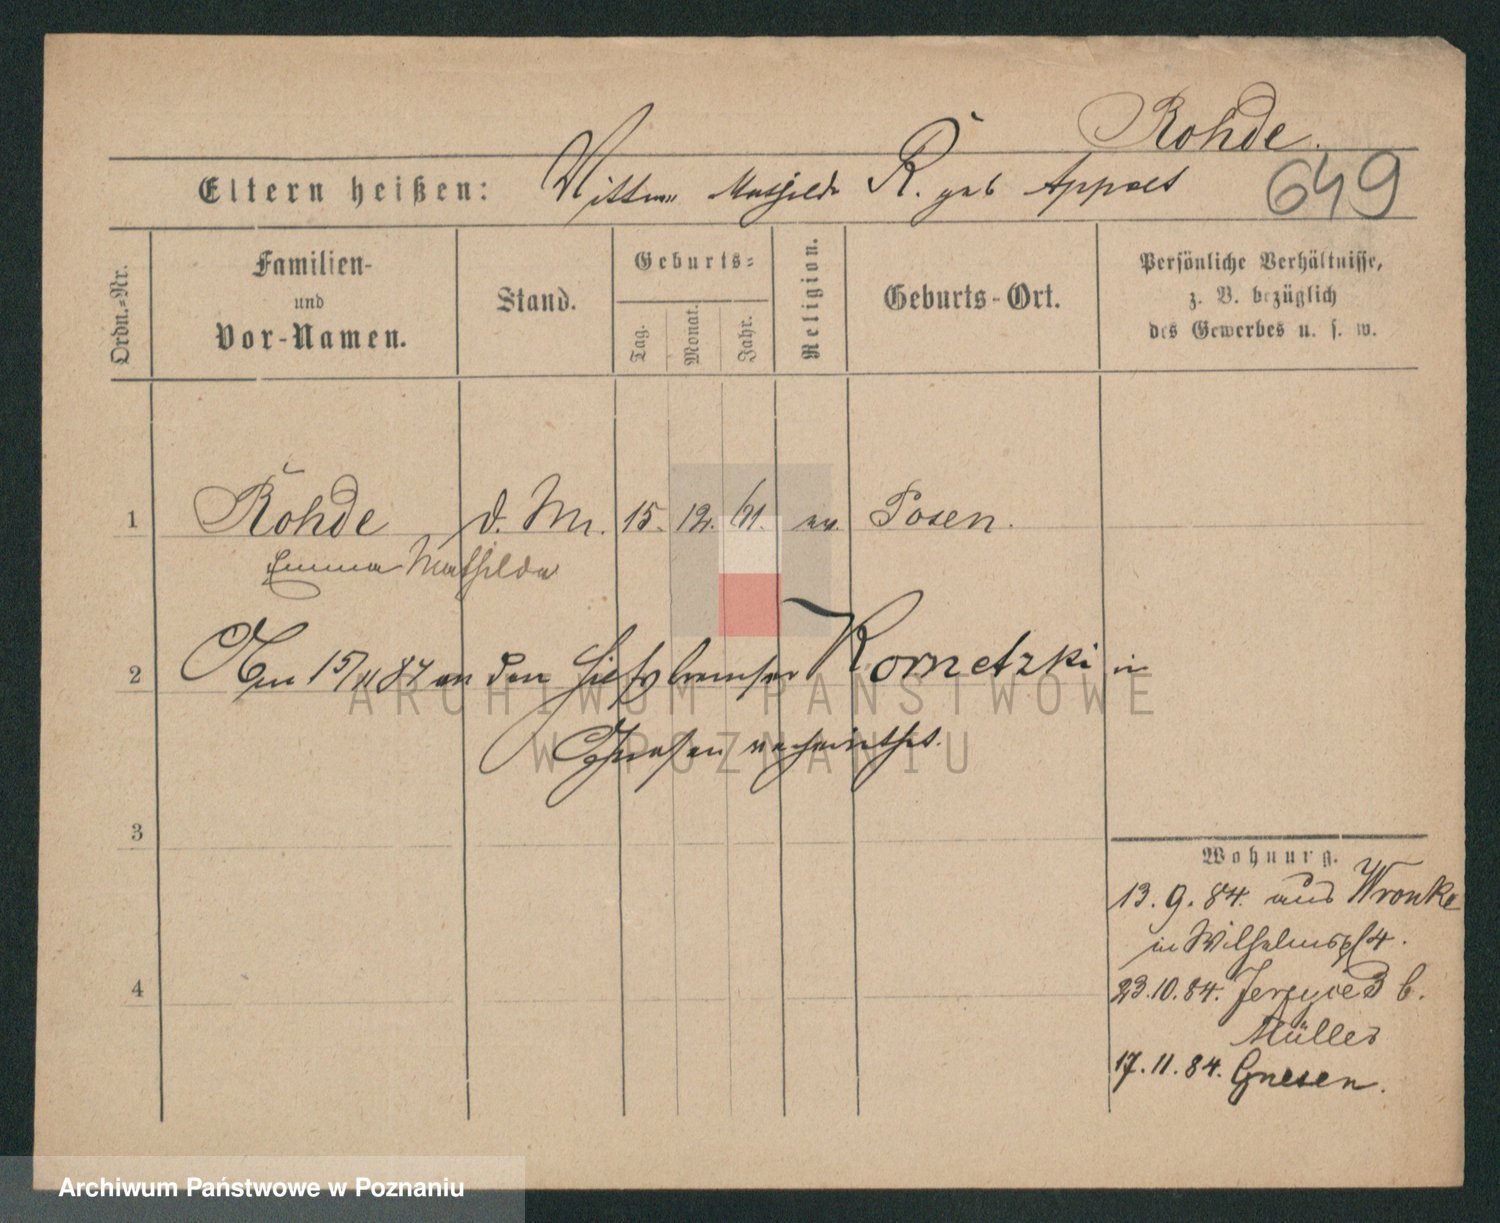 Rohde.
Eltern heißen: Wittwe Mathilde R. geb Appelt
649
Ordn.-Nr.
Familien-
und
Vor-Namen.
Stand.
Geburts-
Tag.
Monat.
Jahr.
Religion.
Geburts-Ort.
Persönliche Verhältnisse,
z. B. bezüglich
des Gewerbes u. s. w.
1 Rohde d. M. 15. 12. 61. ev. Posen.
Emma Mathilde
2 Am 15/11 84 an den Hilfsbremser Kornetzki in
Gnesen verheirathet.
3
4
Wohnung.
13. 9. 84. aus Wronke
in Wilhelmspl 4.
23. 10. 84. b.
Müller
17. 11. 84. Gnesen.
ARCHIWUM PAŃSTWOWE
W POZNANIU
Archiwum Państwowe w Poznaniu